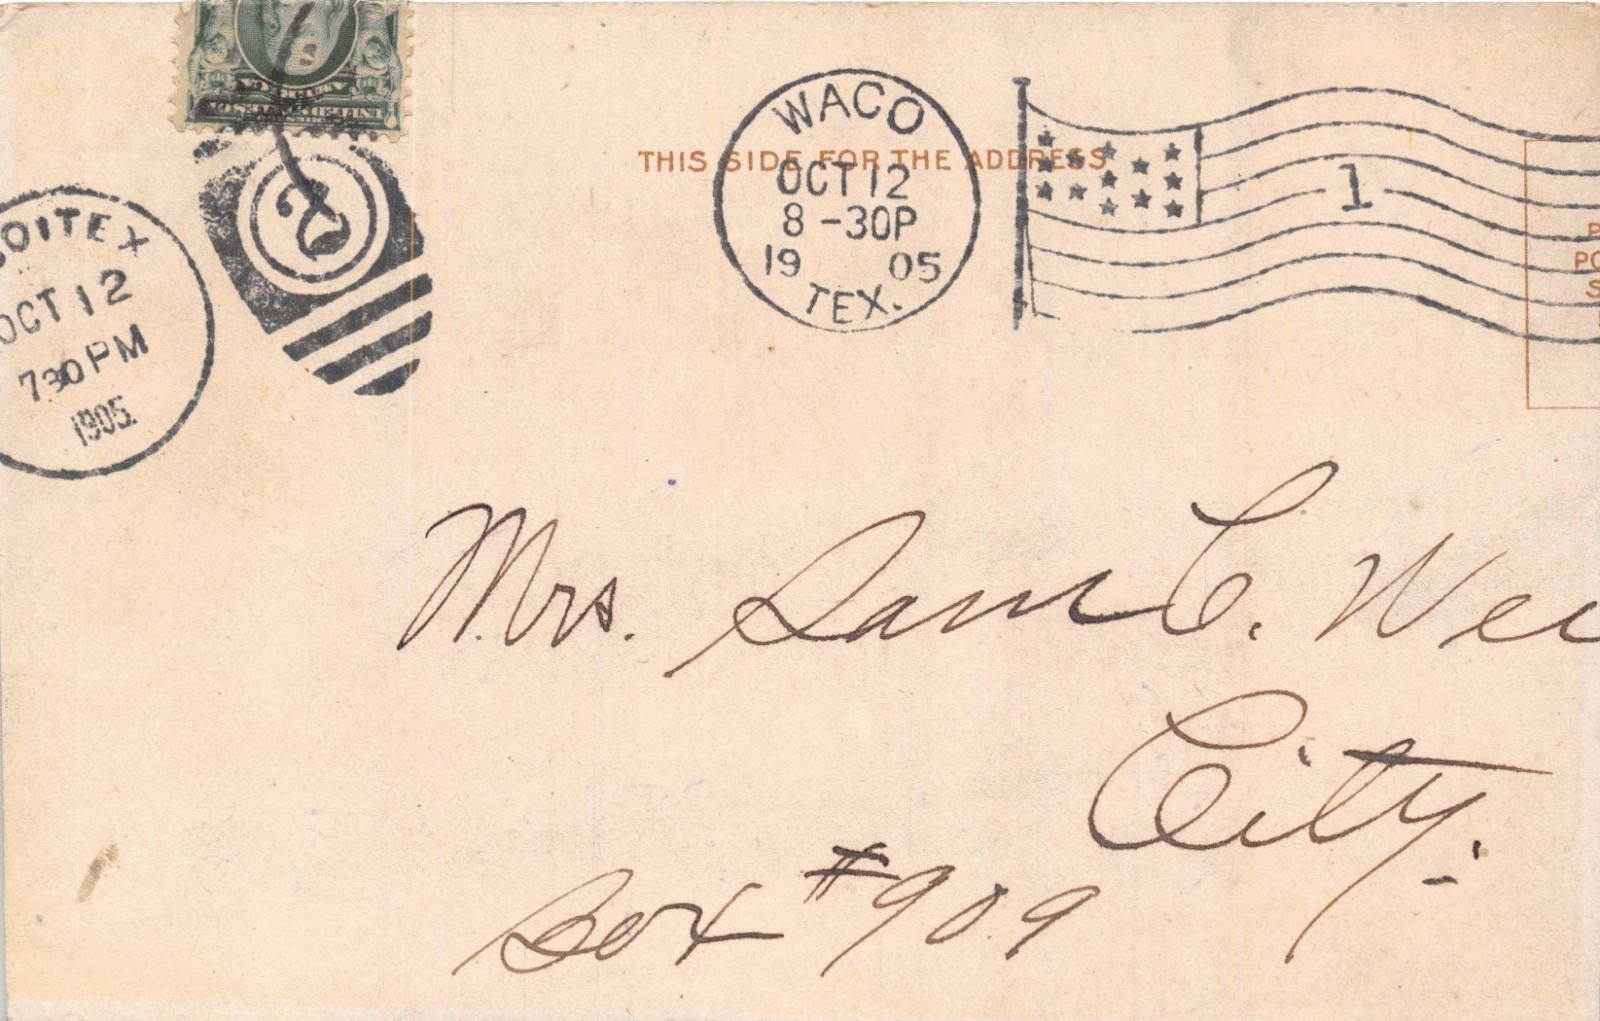 UNITED STATES OF AMERICA
THIS SIDE FOR THE ADDRESS
WACO
OCT 12
8-30P
19 05
TEX.
1
OITEX
OCT 12
730PM
1905.
2
P
PO
S
Mrs. Sam C. Wei
City.
Box #909